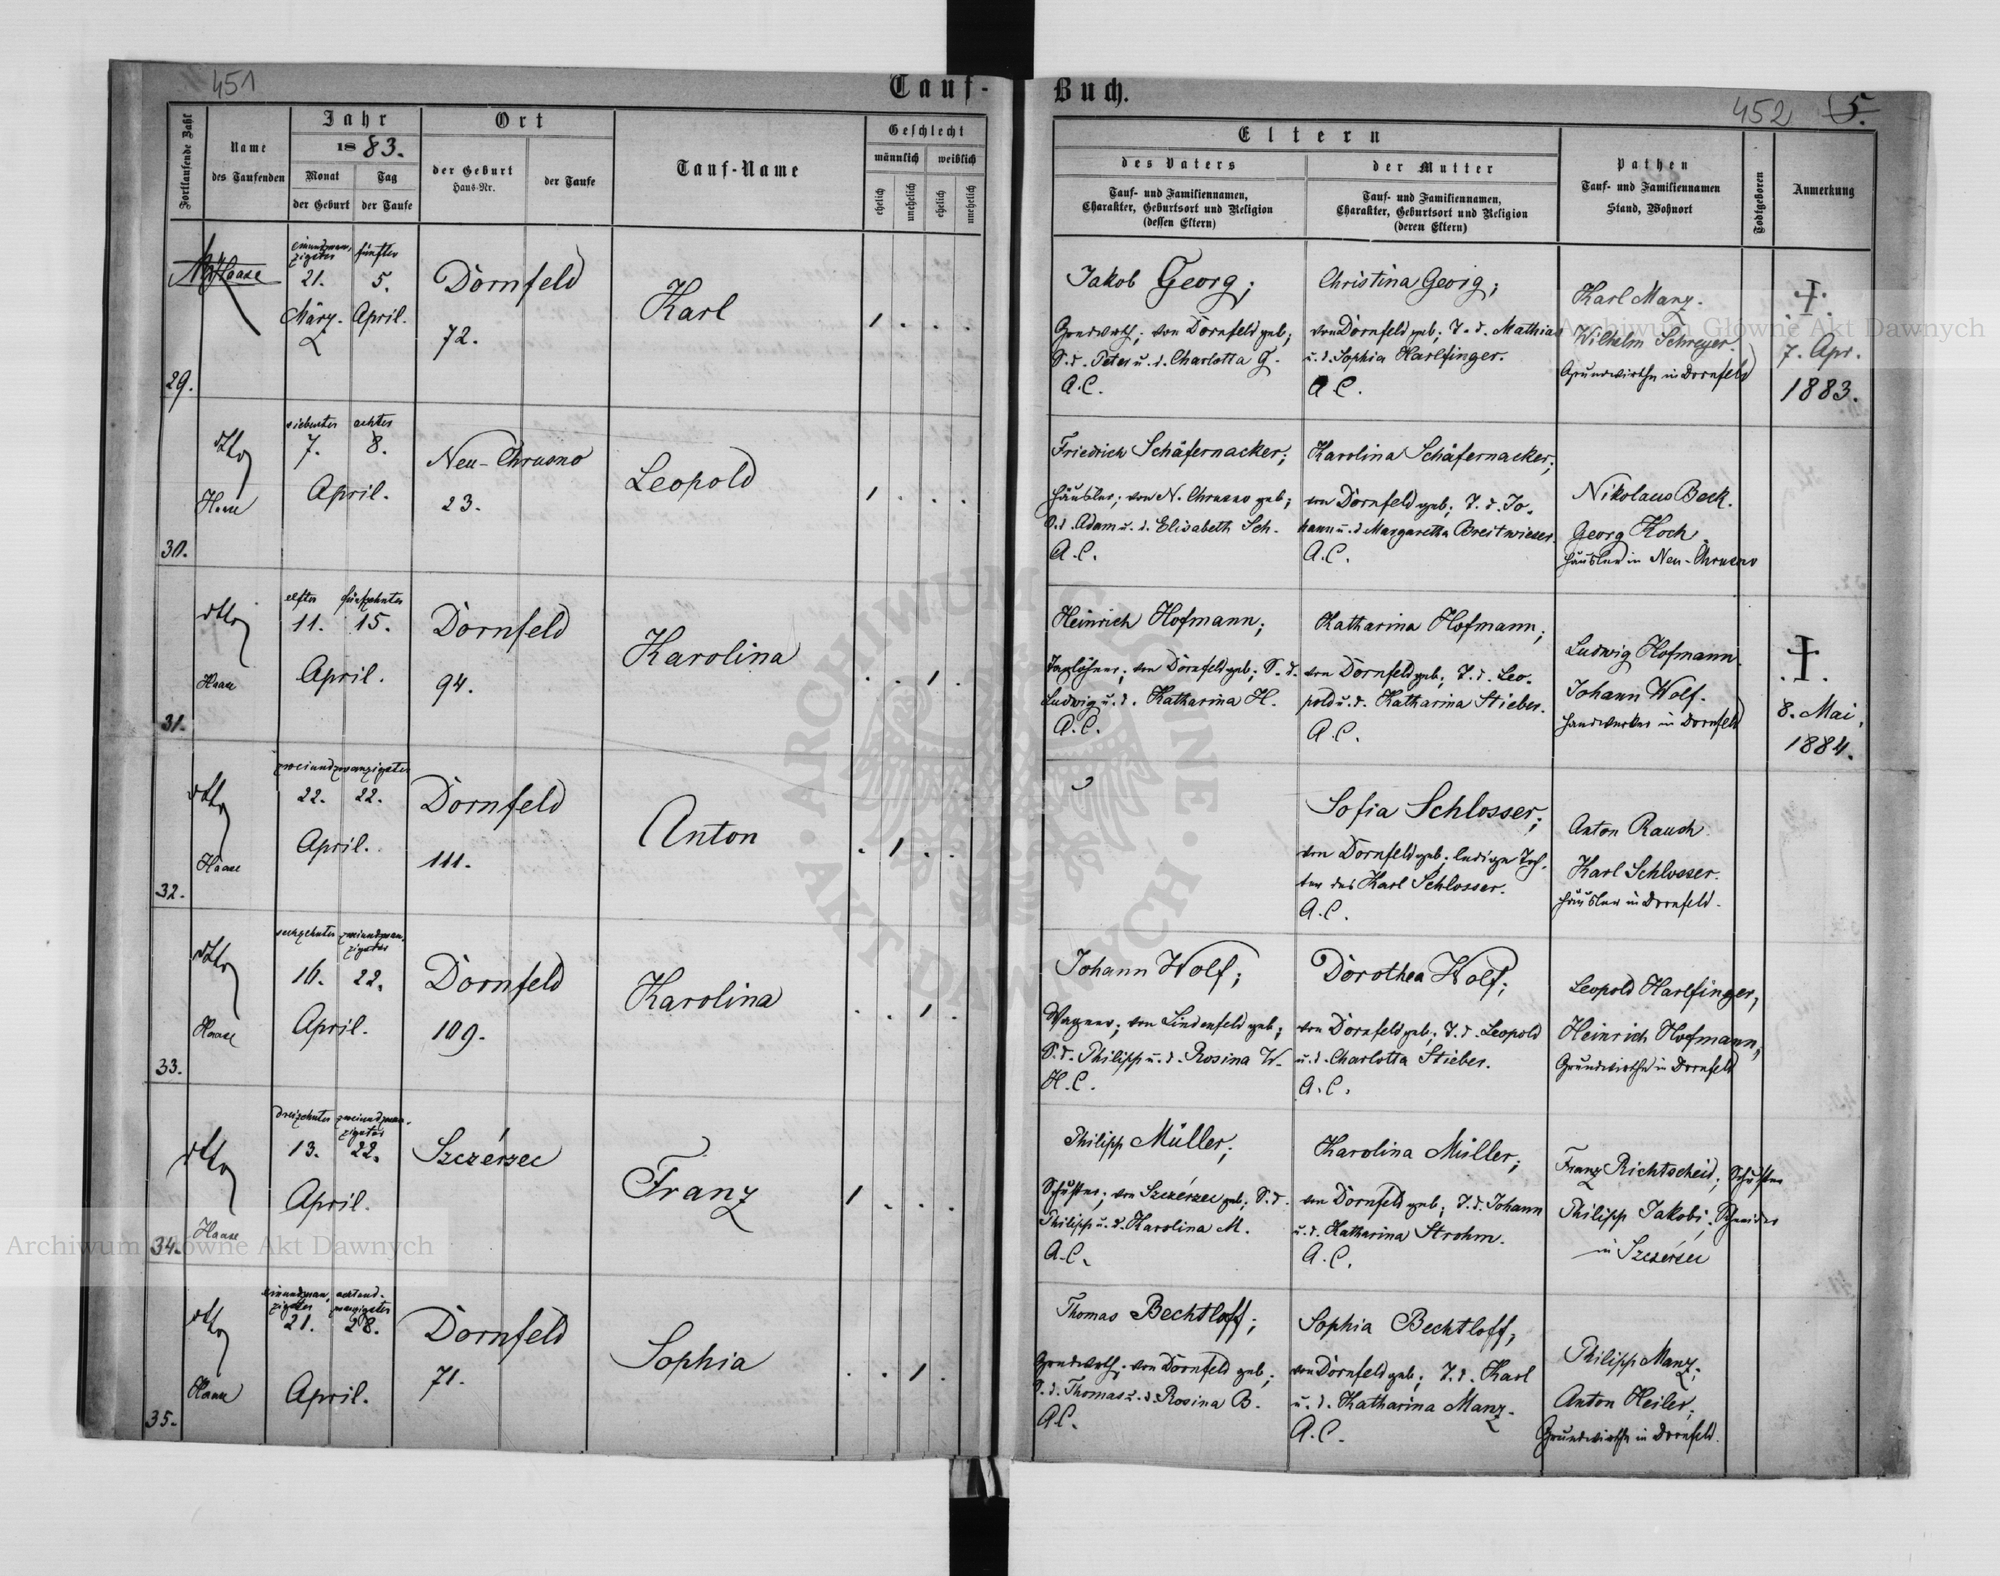 451
Tauf-
Fortlaufende Zahl
Name
des Taufenden
Jahr
1883.
Monat
Tag
der Geburt
der Taufe
Ort
der Geburt
Haus-Nr.
der Taufe
Tauf-Name
Geschlecht
männlich
weiblich
ehelich
unehelich
ehelich
unehelich
29.
Haase
einundzwan-
zigster
fünfter
21.
5.
März.
April.
Dornfeld
72.
Karl
1 . . .
30.
dtto
Haase
siebenter
achter
7.
8.
April.
Neu-Chrusno
23.
Leopold
1 . . .
31.
dtto
Haase
elfter
fünfzehnter
11.
15.
April.
Dornfeld
94.
Karolina
. . 1 .
32.
dtto
Haase
zweiundzwanzigster
22.
22.
April.
Dornfeld
111.
Anton
. 1 . .
33.
dtto
Haase
sechzehnter
zweiundzwan-
zigster
16.
22.
April.
Dornfeld
109.
Karolina
. . 1 .
34.
dtto
Haase
dreizehnter
zweiundzwan-
zigster
13.
22.
April.
Szczérzec
Franz
1 . . .
35.
dtto
Haase
einundzwan-
zigster
achtund-
zwanzigster
21.
28.
April.
Dornfeld
71.
Sophia
. . 1 .
Buch.
452
5.
Eltern
des Vaters
Tauf- und Familiennamen,
Charakter, Geburtsort und Religion
(dessen Eltern)
der Mutter
Tauf- und Familiennamen,
Charakter, Geburtsort und Religion
(deren Eltern)
Pathen
Tauf- und Familiennamen
Stand, Wohnort
Todtgeboren
Anmerkung
Jakob Georg;
Grndwrth; von Dornfeld geb;
S. d. Peter u. d. Charlotta G.
A. C.
Christina Georg;
von Dornfeld geb; T. d. Mathias
u. d. Sophia Harlfinger.
A C.
Karl Manz.
Wilhelm Schreyer.
Grundwirthe in Dornfeld
7. Apr.
1883.
Friedrich Schäfernacker;
Häusler; von N. Chrusno geb;
S. d. Adam u. d. Elisabeth Sch.
A. C.
Karolina Schäfernacker;
von Dornfeld geb; T. d. Jo-
hann u. d. Margaretha Breitwieser.
A. C.
Nikolaus Beck.
Georg Koch.
Häusler in Neu-Chrusno
Heinrich Hofmann;
Taglöhner; von Dornfeld geb; S. d.
Ludwig u. d. Katharina H.
A. C.
Katharina Hofmann;
von Dornfeld geb; T. d. Leo-
pold u. d. Katharina Stieber.
A. C.
Ludwig Hofmann.
Johann Wolf.
Handwerker in Dornfeld
8. Mai,
1884.
Sofia Schlosser;
von Dornfeld geb; ledige Toch-
ter des Karl Schlosser.
A. C.
Anton Rauch.
Karl Schlosser.
Häusler in Dornfeld.
Johann Wolf;
Wagner; von Lindenfeld geb;
S. d. Philipp u. d. Rosina W.
H. C.
Dorothea Wolf;
von Dornfeld geb; T. d. Leopold
u. d. Charlotta Stieber.
A. C.
Leopold Harlfinger,
Heinrich Hofmann;
Grundwirthe in Dornfeld
Philipp Müller;
Schuster; von Szczérzec geb; S. d.
Philipp u. d. Karolina M.
A. C.
Karolina Müller;
von Dornfeld geb; T. d. Johann
u. d. Katharina Strohm.
A. C.
Franz Richtscheid; Schuster
Philipp Jakobi, Schneider
in Szczérzec
Thomas Bechtloff;
Grndwrth; von Dornfeld geb;
S. d. Thomas u. d. Rosina B.
A C.
Sophia Bechtloff;
von Dornfeld geb; T. d. Karl
u. d. Katharina Manz.
A. C.
Philipp Manz;
Anton Heiler;
Grundwirthe in Dornfeld.
Archiwum Główne Akt Dawnych
Archiwum Główne Akt Dawnych
ARCHIWUM GŁÓWNE · AKT DAWNYCH ·